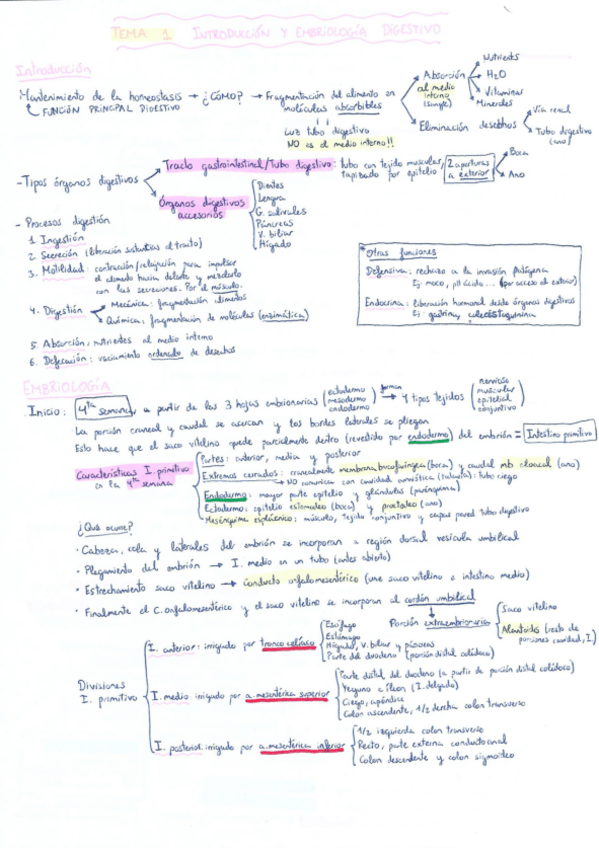 TEMA 1 INTRODUCCIÓN Y EMBRIOLOGÍA DIGESTIVO
Introducción
Mantenimiento de la homeostasis → ¿CÓMO? → Fragmentación del alimento en moléculas absorbibles
FUNCIÓN PRINCIPAL DIGESTIVO
Absorción al medio interno (sangre)
Nutrients
H2O
Vitaminas
Minerales
Eliminación desechos
Vía renal
Tubo digestivo (ano)
Luz tubo digestivo
NO es el medio interno!!
- Tipos órganos digestivos
Tracto gastrointestinal/Tubo digestivo: tubo con tejido muscular, tapizado por epitelio
2 aperturas a exterior
Boca
Ano
Órganos digestivos accesorios
Dientes
Lengua
G. salivales
Páncreas
V. biliar
Hígado
- Procesos digestión
1. Ingestión
2. Secreción (liberación sustancias al tracto)
3. Motilidad: contracción/relajación para impulsar
el alimento hacia delante y mezclarlo
con las secreciones. Por el músculo.
4. Digestión
Mecánica: fragmentación alimentos
Química: fragmentación de moléculas (enzimática)
5. Absorción, nutrientes al medio interno
6. Defecación: vaciamiento ordenado de desechos
*Otras funciones
Defensiva: rechazo a la invasión patógena
Ej: moco, pH ácido... (por acceso al exterior)
Endocrina: liberación hormonal desde órganos digestivos
Ej: gastrina, colecistoquinina
EMBRIOLOGÍA
Inicio: 4ta semana, a partir de las 3 hojas embrionarias (ectodermo mesodermo endodermo) forman → 4 tipos tejidos (nervioso muscular epitelial conjuntivo)
La porción craneal y caudal se acercan y los bordes laterales se pliegan
Esto hace que el saco vitelino quede parcialmente dentro (revestido por endodermo) del embrión = Intestino primitivo
Características I. primitivo en la 4ta semana
Partes: anterior, media y posterior
Extremos cerrados: cranealmente membrana bucofaríngea (boca) y caudal mb cloacal (ano)
→ NO comunica con cavidad amniótica : tubo ciego
Endodermo: mayor parte epitelio y glándulas (parénquima)
Ectodermo: epitelio estomodeo (boca) y proctodeo (ano)
Mesénquima esplácnico: músculo, tejido conjuntivo y capas pared tubo digestivo
¿Qué ocurre?
· Cabeza, cola y laterales del embrión se incorporan a región dorsal vesícula umbilical
· Plegamiento del embrión → I. medio en un tubo (antes abierto)
· Estrechamiento saco vitelino → Conducto onfalomesentérico (une saco vitelino a intestino medio)
· Finalmente el C. onfalomesentérico y el saco vitelino se incorporan al cordón umbilical
Porción extraembrionaria
Saco vitelino
Alantoides (resto de porciones
Divisiones I. primitivo
I. anterior: irrigado por tronco celíaco
Esófago
Estómago
Hígado, V. biliar y páncreas
Parte del duodeno (porción distal colédoco)
I. medio irrigado por a. mesentérica superior
Parte distal del duodeno (a partir de porción distal colédoco)
Yeyuno e íleon (I. delgado)
Ciego, apéndice
Colon ascendente, 1/2 derecha colon transverso
I. posterior: irrigado por a. mesentérica inferior
1/2 izquierda colon transverso
Recto, parte externa conducto anal
Colon descendente y colon sigmoideo